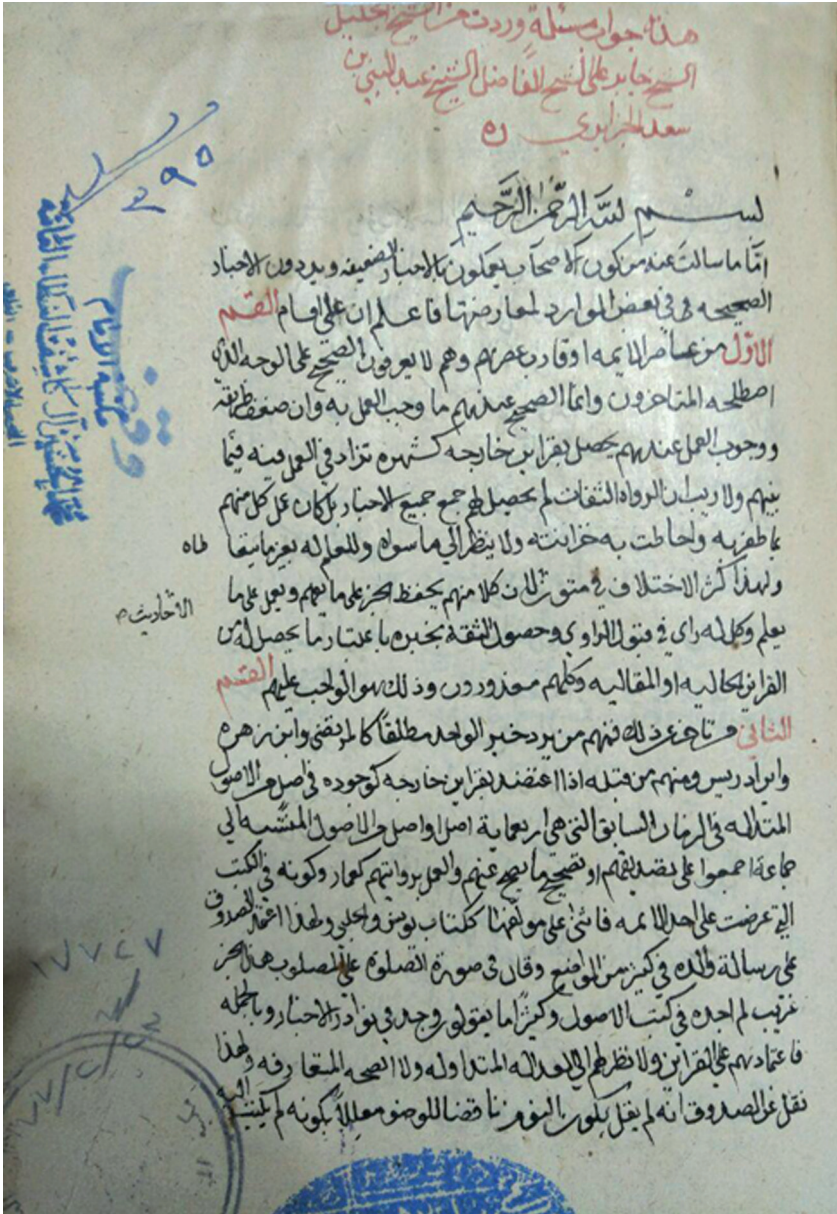 هذا جواب مسئلة وردت من الشيخ الجليل
الشيخ جابر على الشيخ الفاضل الشيخ عبد النبي بن
سعد الجزايري ره
بسم الله الرحمن الرحيم
اما ما سالت عنه من كون الاصحاب يعملون بالاخبار الضعيفه ويردون الاخبار
الصحيحه في بعض الموارد لمعارضتها فاعلم ان على اقسام القسم
الاول من عاصر الايمه او قارب عصرهم وهم لا يعرفون الصحيح على الوجه الذي
اصطلحه المتاخرون وانما الصحيح عندهم ما وجب العمل به وان ضعف طريقه
ووجوب العمل عندهم يحصل بقراين خارجه كشهره تزاد في العمل فيه فيما
بينهم ولا ريب ان الرواه الثقات لم يحصل لهم جمع جميع الاخبار بل كان عمل كل منهم
بما ظفر به واحاطت به خزانته ولا ينظر الى ما سواه
ولهذا كثر الاختلاف في متون لان كلا منهم يحفظ الخبر على ما يفهم ويعمل على ما
الأحاديث
يعلم وكل له راي في قبول الراوي وحصول الثقة بخبره باعتبار ما يحصل له من
القراين الحاليه او المقاليه وكلهم معذورون وذلك هو الواجب عليهم القسم
الثاني من تاخر عن ذلك فمنهم من يرد خبر الواحد مطلقا كالمرتضى وابن زهره
وابن ادريس ومنهم من قبله اذا اعتضد بقراين خارجه كوجوده في اصل من الاصول
المتداوله في الزمان السابق التي هي اربعماية اصل او اصل من الاصول المنتسبه الى
جماعة اجمعوا على تصديقهم او تصحيح ما يصح عنهم والعمل بروايتهم كعمار وكونه في الكتب
التي عرضت على احد الايمه فاثنى على مولفها ككتاب يونس والحلبي ولهذا اعتمد الصدوق
على رسالة والده في كثير من المواضع وقال في صورة الصلوة على المصلوب هذا الخبر
غريب لم اجده في كتب الاصول وكثيرا ما يقولون وجد في نوادر الاخبار وبالجمله
فاعتمادهم على القراين ولا نظر لهم الى العداله المتداوله ولا الصحه المتعارفه ولهذا
نقل عن الصدوق انه لم يقل بكون النوم ناقضا للوضو معللا بكونه لم
٢٩٥
وقف